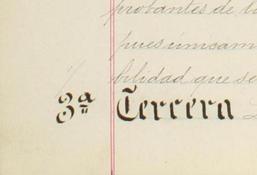 probantes de la
pues únicam
bilidad que se
3ª Tercera